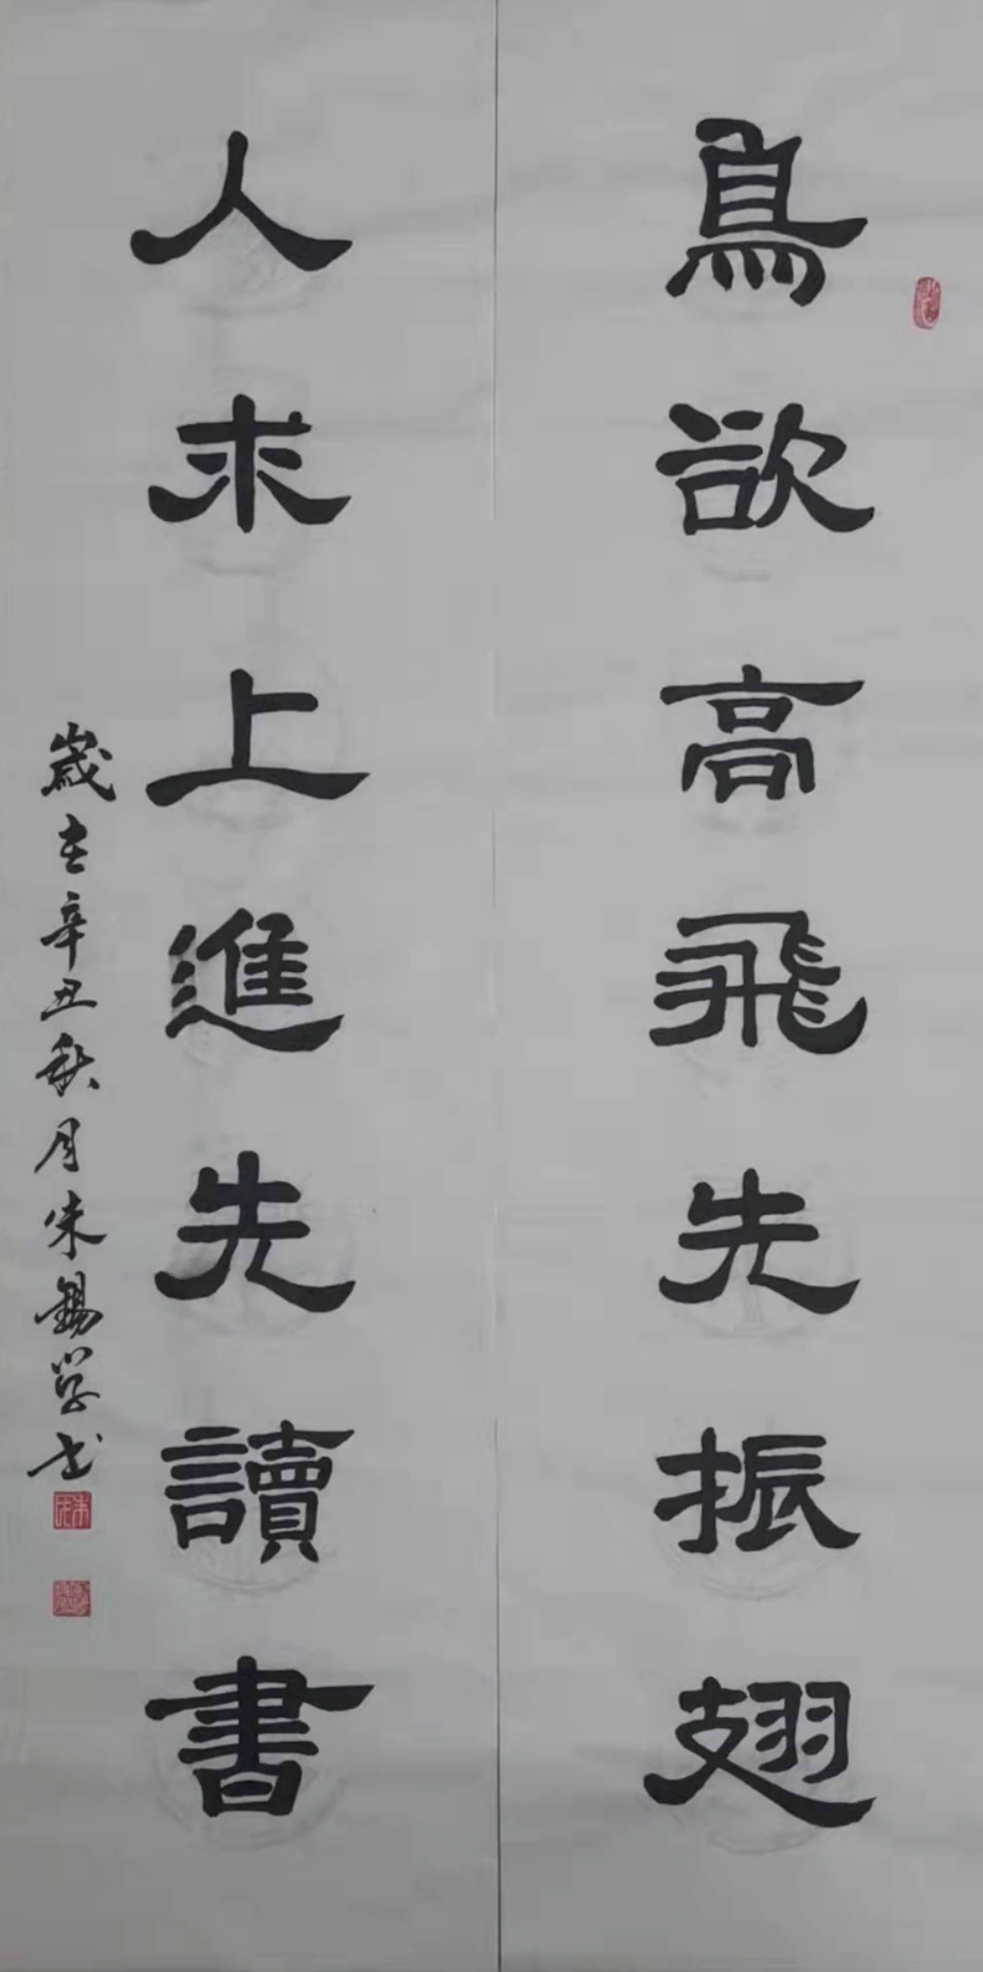 鳥欲高飛先振翅
人求上進先讀書
歲在辛丑秋月朱錫學书
朱氏